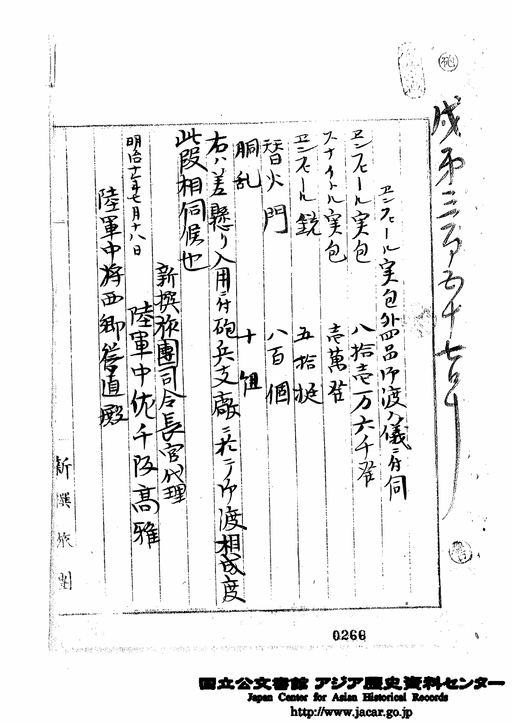 砲
戌第三百五十七号
エンフヒール実包外四品御渡ノ儀ニ付伺
エンフヒール実包 八拾壱万六千発
スナイトル実包 壱萬発
エンフヒール銃 五拾挺
替火門 八百個
胴乱 十組
右ハ差懸リ入用ニ付砲兵支廠ニ於テ御渡相成度
此段相伺候也
新撰旅團司令長官代理
明治十年七月十八日 陸軍中佐千阪高雅
陸軍中将西郷従道殿
新撰旅團
0266
国立公文書館 アジア歴史資料センター
Japan Center for Asian Historical Records
http://www.jacar.go.jp